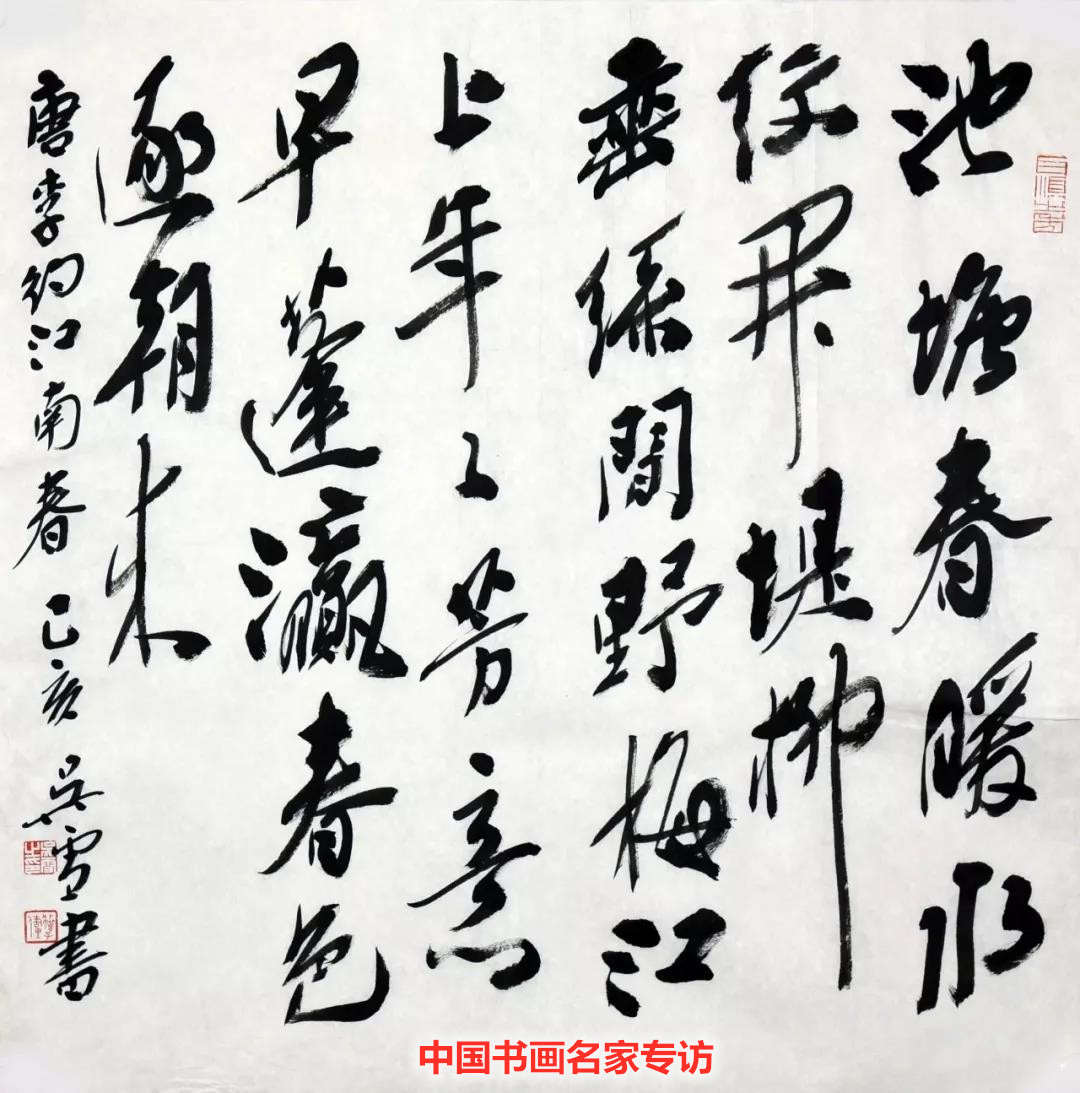 池塘春暖水
紋开堤柳
垂絲間野梅江
上年々芳意
早蓬瀛春色
逐朝来
唐李約江南春 己亥 吴雪書
中国书画名家专访